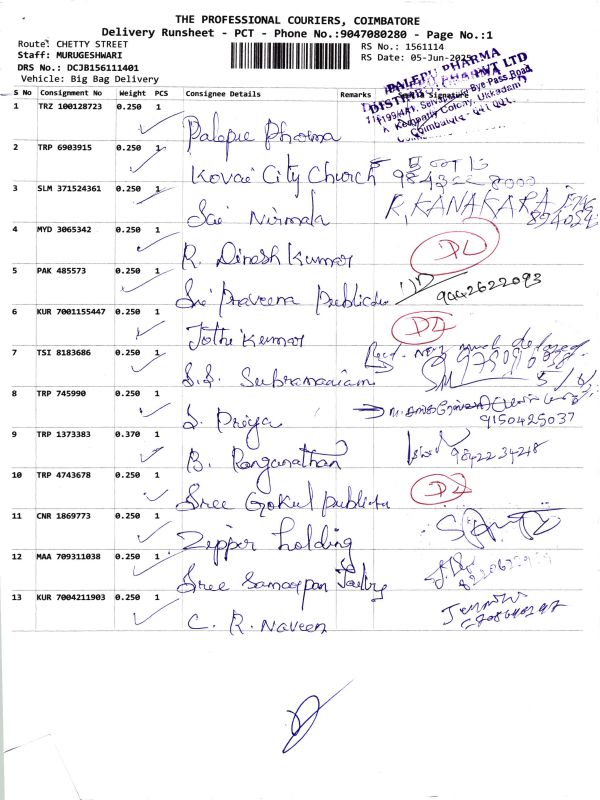 THE PROFESSIONAL COURIERS, COIMBATORE
Delivery Runsheet - PCT - Phone No.:9047080280 - Page No.:1
Route: CHETTY STREET
Staff: MURUGESHWARI
DRS No.: DCJB156111401
Vehicle: Big Bag Delivery
RS No.: 1561114
RS Date: 05-Jun-2025
PALEPU PHARMA
DISTRIB PHARMA PVT LTD
Bye Pass Road
Kempatty Colony, Ukkadam
Coimbatore - 641 001.
S No Consignment No Weight PCS Consignee Details Remarks Signature
1 TRZ 100128723 0.250 1 Palepu Pharma
2 TRP 6903915 0.250 1 Kovai City Church
3 SLM 371524361 0.250 1 Sai Nirmala R, KANAKARA
4 MYD 3065342 0.250 1 R. Dinesh Kumar DL
5 PAK 485573 0.250 1 Sri Praveena Publicat 9042622093
6 KUR 7001155447 0.250 1 Jothi Kumar DL
7 TSI 8183686 0.250 1 S.S. Subramaniam
8 TRP 745990 0.250 1 S. Priya 9150425037
9 TRP 1373383 0.370 1 B. Ranganathan 9842234248
10 TRP 4743678 0.250 1 Sree Gokul Publicat DL
11 CNR 1869773 0.250 1 Zepper holding
12 MAA 709311038 0.250 1 Sree Samarpan
13 KUR 7004211903 0.250 1 C. R. Naveen